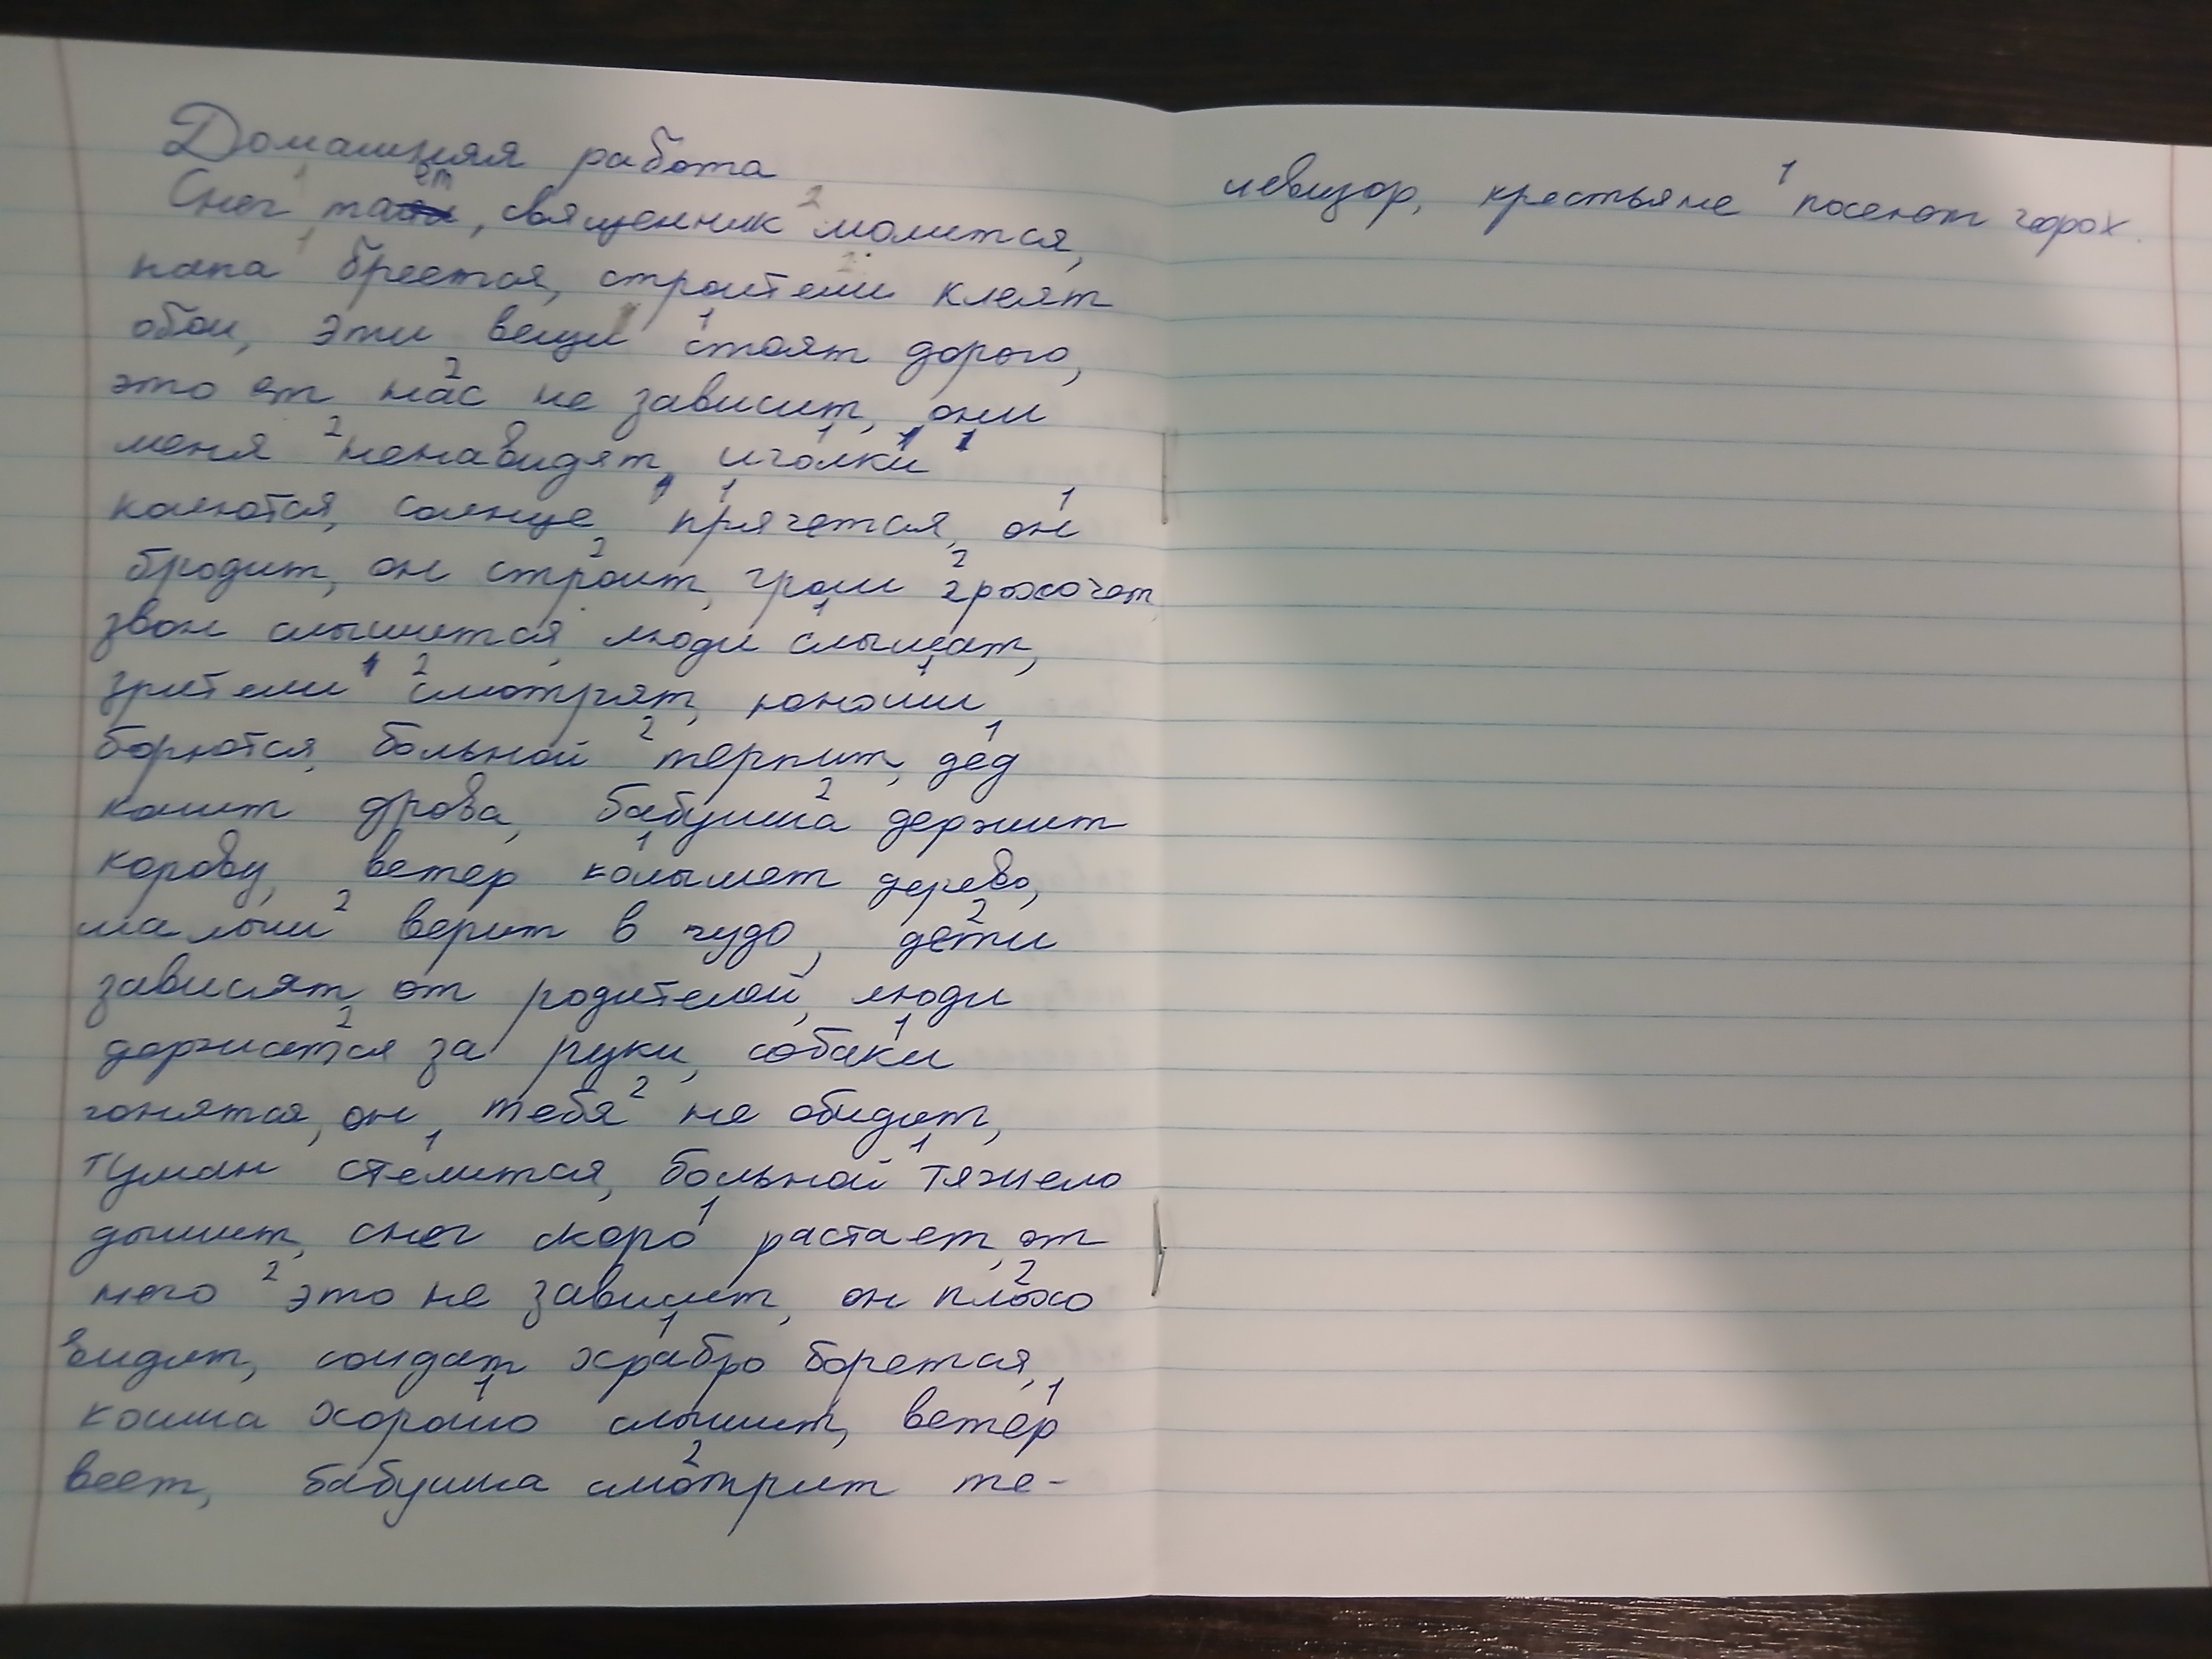 Домашняя работа
Снег ¹ тает, священник ² молится,
папа ¹ бреется, строители ² клеят
обои, эти вещи ¹ стоят дорого,
это от нас ² не зависит, они
меня ² ненавидят, иголки ¹
колются, солнце ¹ прячется, он ¹
бродит, он строит ², гром ² грохочет,
звон слышется, люди ¹ слышат,
зрители ² смотрят, юноши ¹
борются, больной ² терпит, дед ¹
колит дрова, бабушка ² держит
корову, ветер ¹ колышет дерево,
малыш ² верит в чудо, дети ²
зависят от родителей, люди
держатся ² за руки, собаки ¹
гонятся, он тебя ² не обидит,
туман ¹ стелится, больной ¹ тяжело
дышит, снег скоро ¹ растает, от
него ² это не зависит, он плохо ²
видит, солдат храбро ¹ борется,
кошка хорошо ¹ слышит, ветер ¹
веет, бабушка смотрит ² те-
левизор, крестьяне ¹ посеют горох.